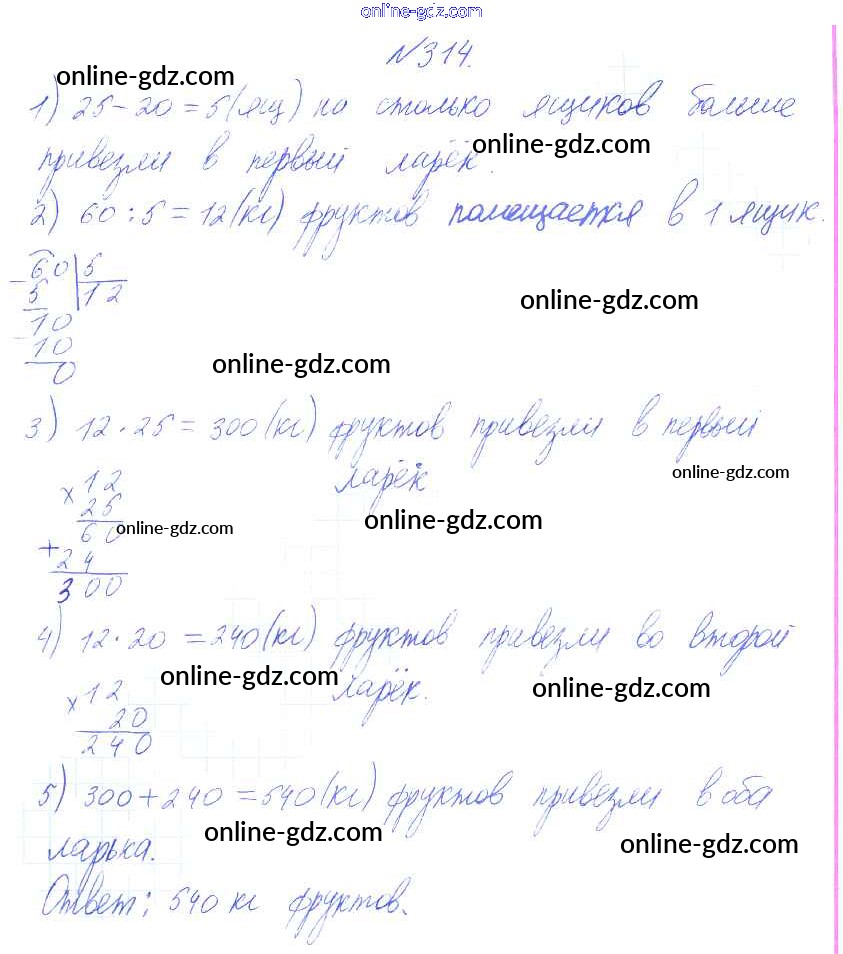 online-gdz.com
№314.
online-gdz.com
1) 25-20=5(ящ) на столько ящиков больше
online-gdz.com
привезли в первый ларёк.
2) 60:5=12(кг) фруктов помещается в 1 ящик.
60 5
5 12
online-gdz.com
10
10
online-gdz.com
0
3) 12·25=300(кг) фруктов привезли в первый
ларёк
online-gdz.com
x 12
25
online-gdz.com
60 online-gdz.com
+
24
300
4) 12·20=240(кг) фруктов привезли во второй
online-gdz.com
ларёк.
online-gdz.com
x 12
20
240
5) 300+240=540(кг) фруктов привезли в оба
online-gdz.com
online-gdz.com
ларька.
Ответ: 540 кг фруктов.